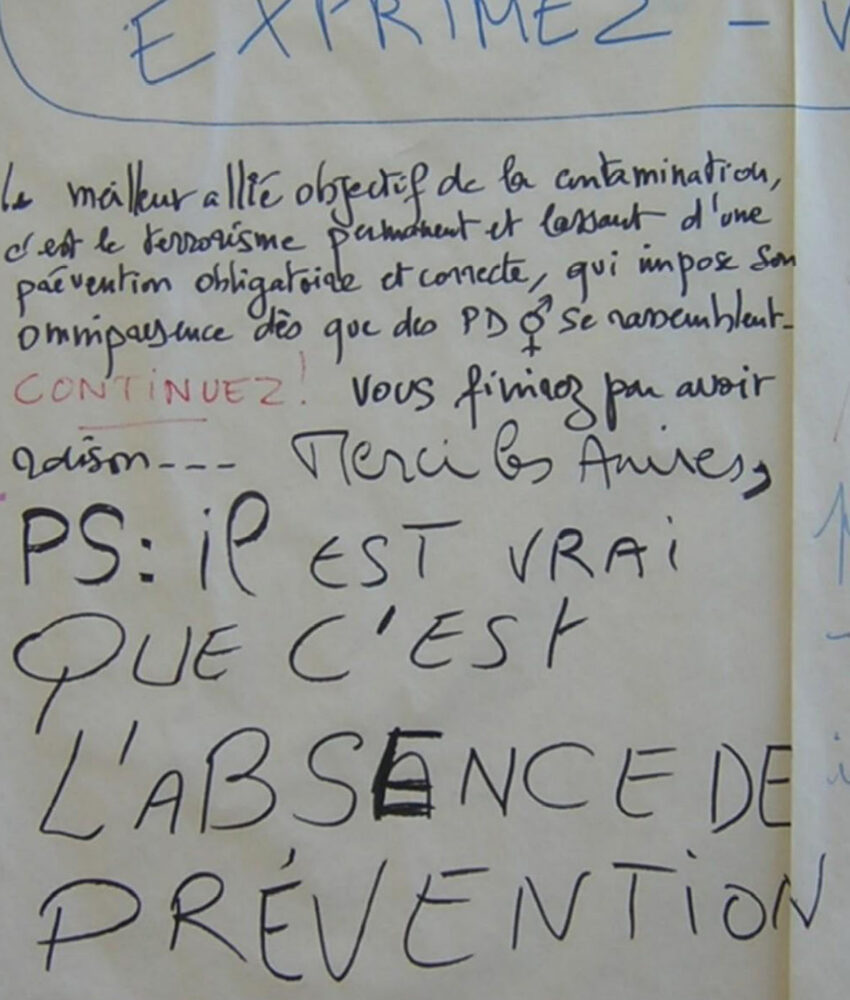 EXPRIMEZ - V
Le meilleur allié objectif de la contamination,
c'est le terrorisme permanent et lassant d'une
prévention obligatoire et correcte, qui impose son
omniprésence dès que des PD ⚥ se rassemblent-
CONTINUEZ! Vous finirez par avoir
raison--- Merci les Amies,
PS: il EST VRAI
QUE C'EST
L'ABSENCE DE
PRÉVENTION